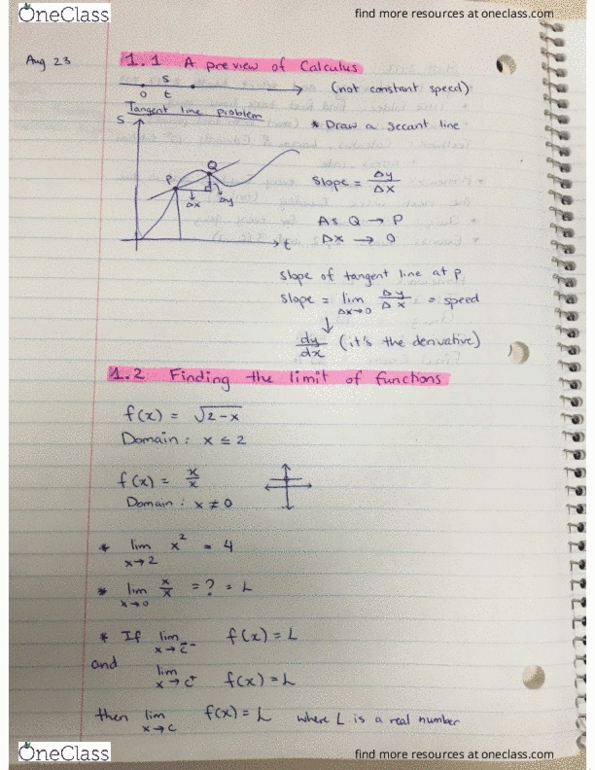 OneClass
find more resources at oneclass.com
Aug 23
1.1 A preview of Calculus
S
0 t
(not constant speed)
Tangent line problem
* Draw a secant line
S
P
Q
Δx
Δy
t
Slope = Δy/Δx
As Q → P
Δx → 0
Slope of tangent line at P.
Slope = lim Δx→0 Δy/Δx = speed
↓
dy/dx (it's the derivative)
1.2 Finding the limit of functions
f(x) = √2-x
Domain: x ≤ 2
f(x) = x/x
Domain: x ≠ 0
* lim x→2 x² = 4
* lim x→0 x/x = ? = L
* If lim x→c⁻ f(x) = L
and
lim x→c⁺ f(x) = L
then lim x→c f(x) = L where L is a real number
OneClass
find more resources at oneclass.com